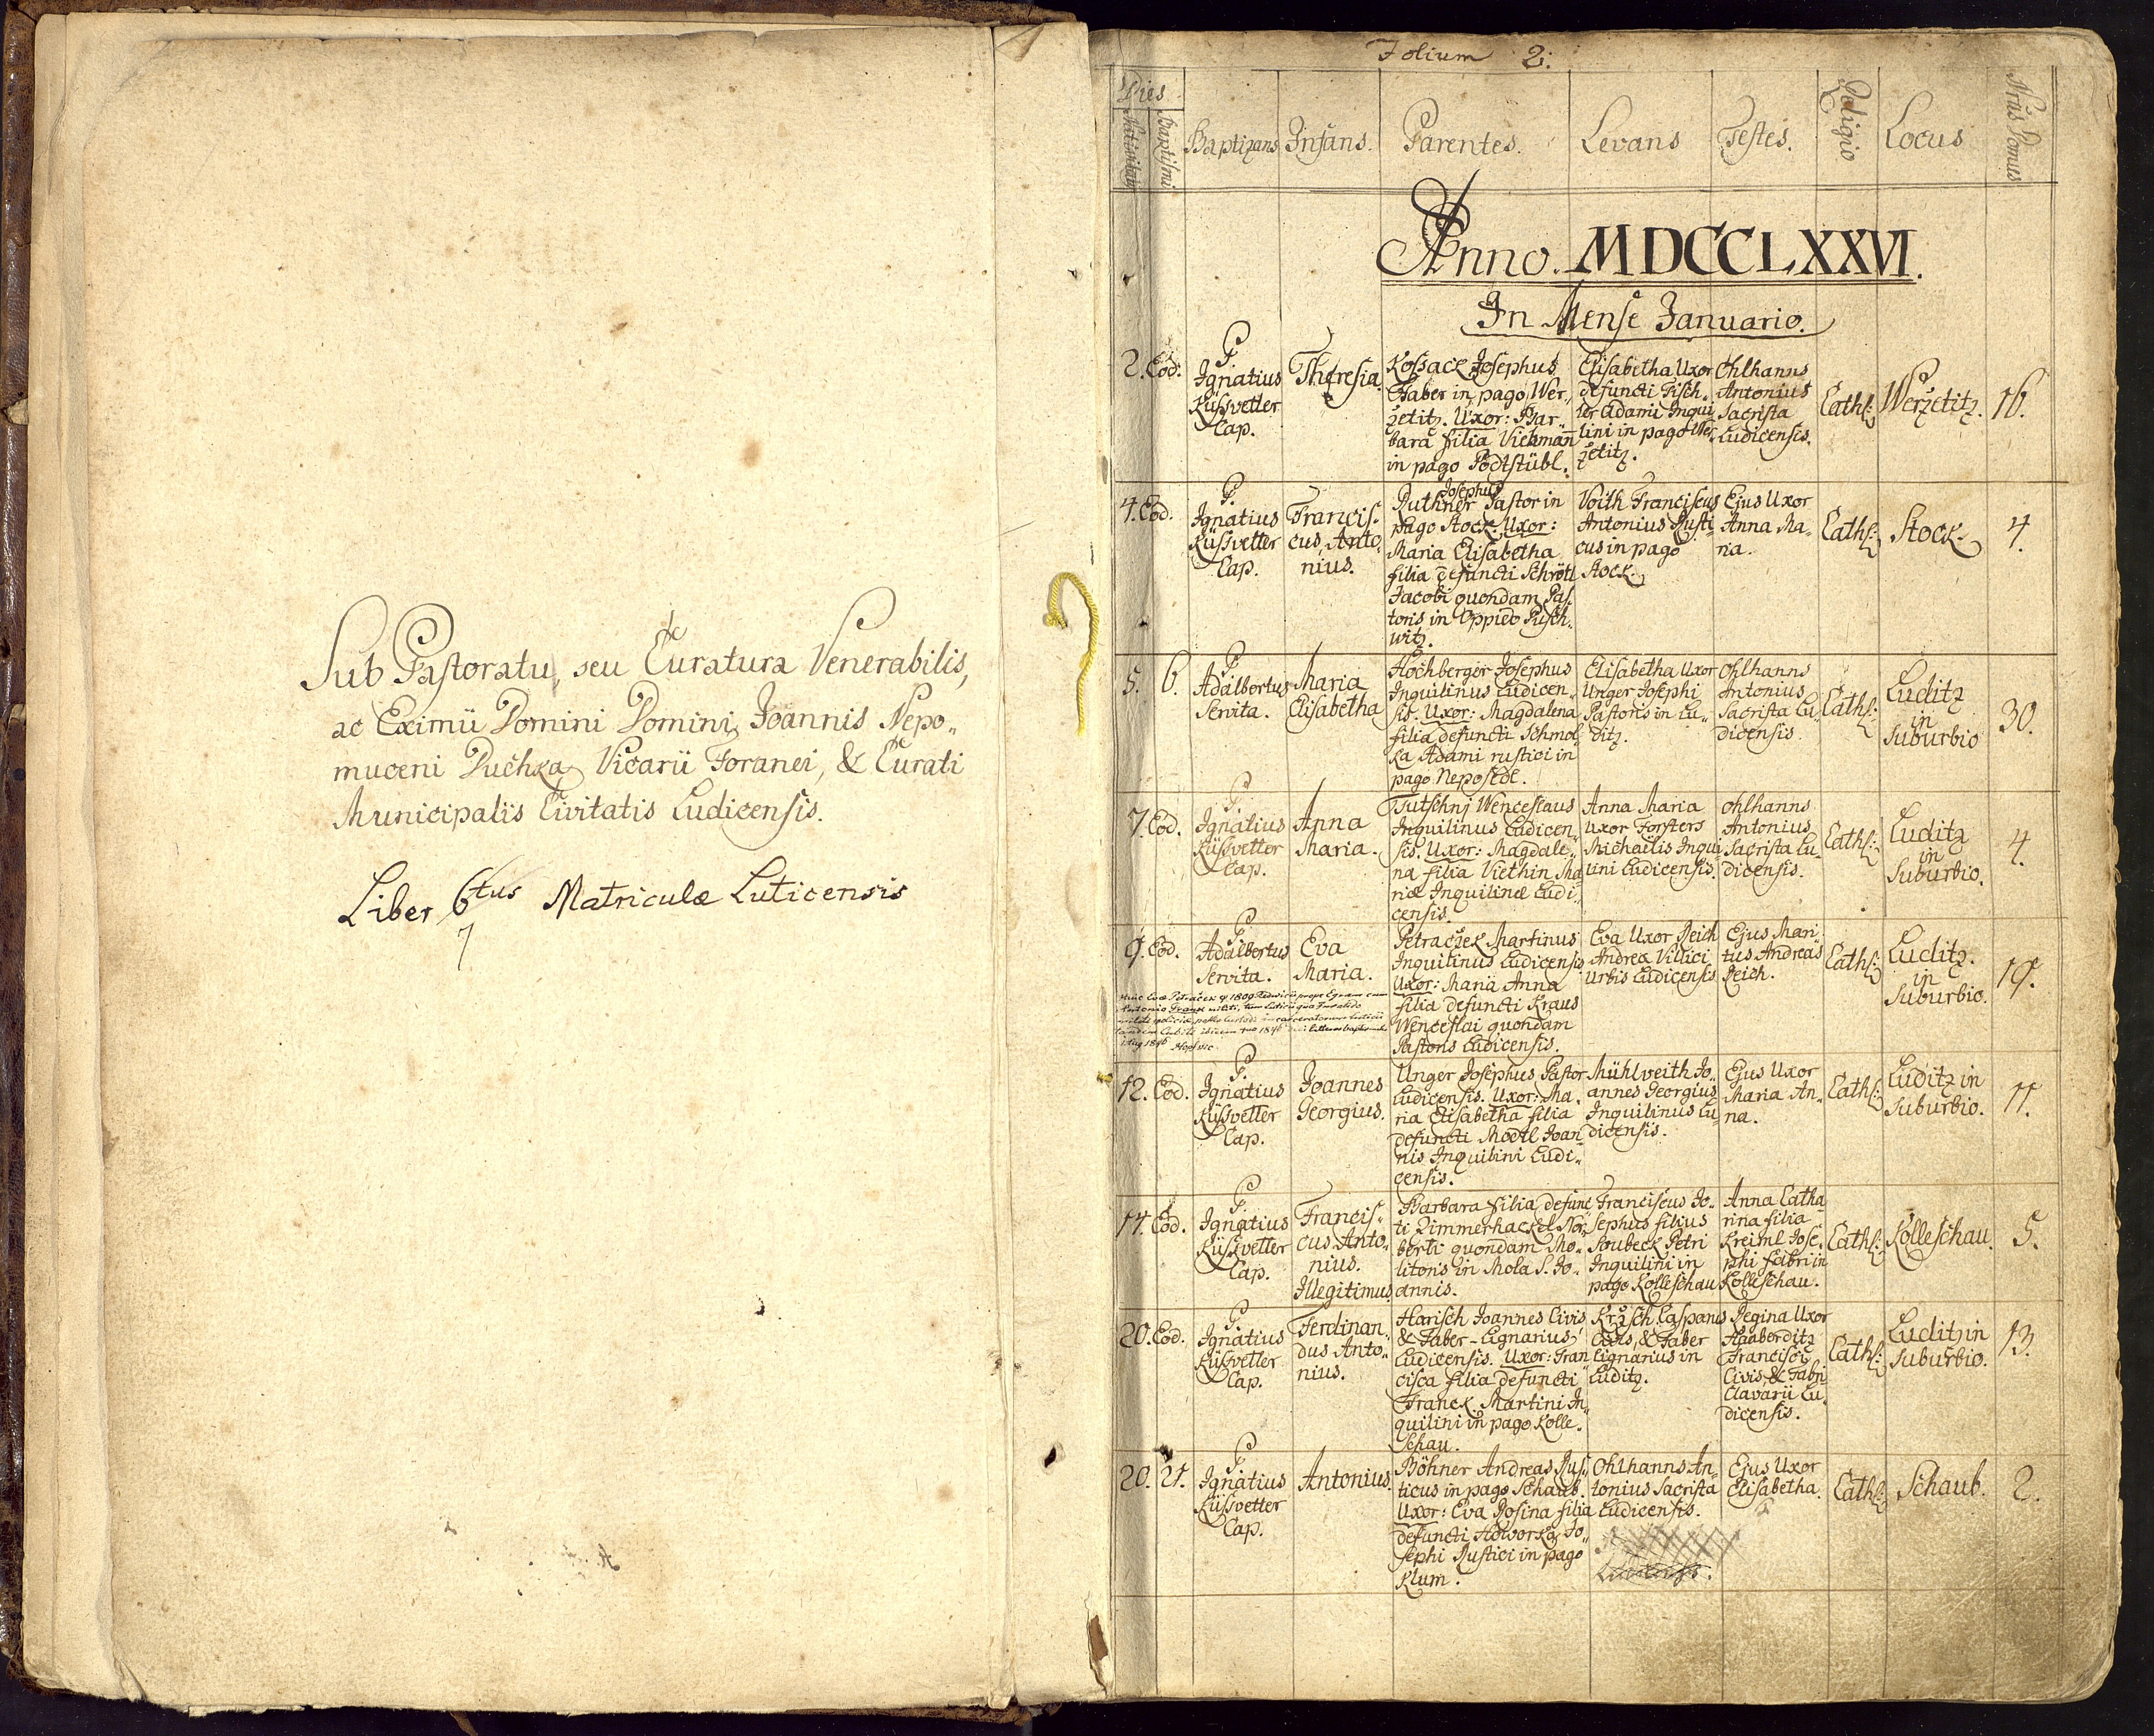 Sub Pastoratu, seu Curatura Venerabilis,
ac Eximii Domini Domini Joannis Nepo„
muceni Duchka, Vicarii Foranei, & Curati
Municipalis Civitatis Ludicensis.
Liber 6tus Matriculæ Luticensis
7
Folium 2.
Dies
Nativitatis
Baptismi
Baptizans
Infans.
Parentes.
Levans
Testes.
Religio
Locus
Nrus Domus
Anno. MDCCLXXVI.
In Mense Januario.
2. Eod.
P.
Ignatius
Küssvetter
Cap.
Theresia.
Kossack Josephus
Faber in pago Wer„
zetitz. Uxor: Bar„
bara filia Viekman
in pago Podtstübl.
Elisabetha Uxor
defuncti Fisch„
ler Adami Inqui
lini in pago Wer„
zetitz.
Ohlhanns
Antonius
Sacrista
Ludicensis.
Cath:
Werzetitz.
16.
4. Eod.
P.
Ignatius
Küssvetter
Cap.
Francis„
cus Anto„
nius.
Josephus
Puthner Pastor in
pago Stock. Uxor:
Maria Elisabetha
filia defuncti Schrötl
Jacobi quondam Pas„
toris in Oppido Pusch„
witz.
Voith Franciscus
Antonius Rusti
cus in pago
Stock.
Ejus Uxor
Anna Ma„
ria.
Cath:
Stock.
4.
5. 6.
P.
Adalbertus
Servita.
Maria
Elisabetha
Hochberger Josephus
Inquilinus Ludicen„
sis. Uxor: Magdalena
filia defuncti Schmol„
ka Adami rustici in
pago Neposedl.
Elisabetha Uxor
Unger Josephi
Pastoris in Lu„
ditz.
Ohlhanns
Antonius
Sacrista Lu„
dicensis.
Cath:
Luditz
in
Suburbio
30.
7. Eod.
P.
Ignatius
Küssvetter
Cap.
Anna
Maria.
Tutschnj Wenceslaus
Inquilinus Ludicen„
sis. Uxor: Magdale„
na filia Viethin Ma
riæ Inquilinæ Ludi„
censis.
Anna Maria
Uxor Forsters
Michaelis Inqui
lini Ludicensis.
Ohlhanns
Antonius
Sacrista Lu„
dicensis.
Cath:
Luditz
in
Suburbio.
4.
9. Eod.
P.
Adalbertus
Servita.
Eva
Maria.
Petraczek Martinus
Inquilinus Ludicensis
Uxor: Maria Anna
filia defuncti Kraus
Wenceslai quondam
Pastoris Ludicensis.
Eva Uxor Reich
Andreæ Villici
Urbis Ludicensis
Ejus Mari
tus Andreas
Reich.
Cath:
Luditz.
in
Suburbio.
19.
12. Eod.
P.
Ignatius
Küssvetter
Cap.
Joannes
Georgius.
Unger Josephus Pastor
Ludicensis. Uxor: Ma„
ria Elisabetha filia
defuncti Mödtl Joan„
nis Inquilini Ludi„
censis.
Mühlveith Jo„
annes Georgius
Inquilinus Lu
dicensis.
Ejus Uxor
Maria An„
na.
Cath:
Luditz in
Suburbio.
11.
14. Eod.
P.
Ignatius
Küssvetter
Cap.
Francis„
cus Anto„
nius.
Illegitimus
Barbara filia defunc
ti Zimmerhackel Nor„
berti quondam Mo„
litoris in Mola S. Jo„
annis.
Franciscus Jo„
sephus filius
Soubeck Petri
Inquilini in
pago Kolleschau
Anna Catha
rina filia
Kreiml Jose„
phi fabri in
Kolleschau.
Cath:
Kolleschau
5.
20. Eod.
P.
Ignatius
Küssvetter
Cap.
Ferdinan„
dus Anto„
nius.
Harisch Joannes Civis
& Faber-Lignarius
Ludicensis. Uxor: Fran
cisca filia defuncti
Franck Martini In„
quilini in pago Kolle„
schau.
Krzsch Casparus
Civis, & Faber
Lignarius in
Luditz.
Regina Uxor
Haaberditz
Francisci
Civis, & Fabri
Clavarii Lu„
dicensis.
Cath:
Luditz in
Suburbio.
13.
20. 21.
P.
Ignatius
Küssvetter
Cap.
Antonius.
Böhner Andreas Rus„
ticus in pago Schaub.
Uxor: Eva Rosina filia
defuncti Howorka Jo„
sephi Rustici in pago
Klum.
Ohlhanns An„
tonius Sacrista
Ludicensis.
Ejus Uxor
Elisabetha.
Cath:
Schaub.
2.